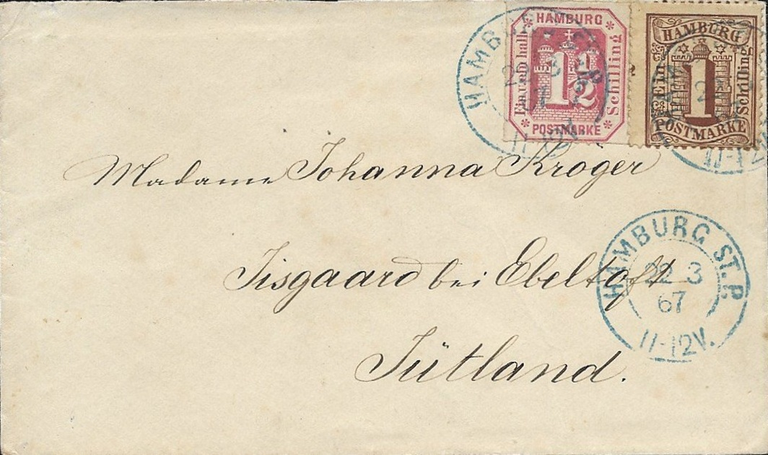 HAMBURG
Ein und halb
Schilling
1½
POSTMARKE
HAMBURG
Ein
Schilling
1
POSTMARKE
HAMBURG ST. P.
22 3
67
11-12V.
HAMBURG ST. P.
11-12V.
Madame Johanna Kröger
Jisgaard bei Ebeltoft
Jütland.